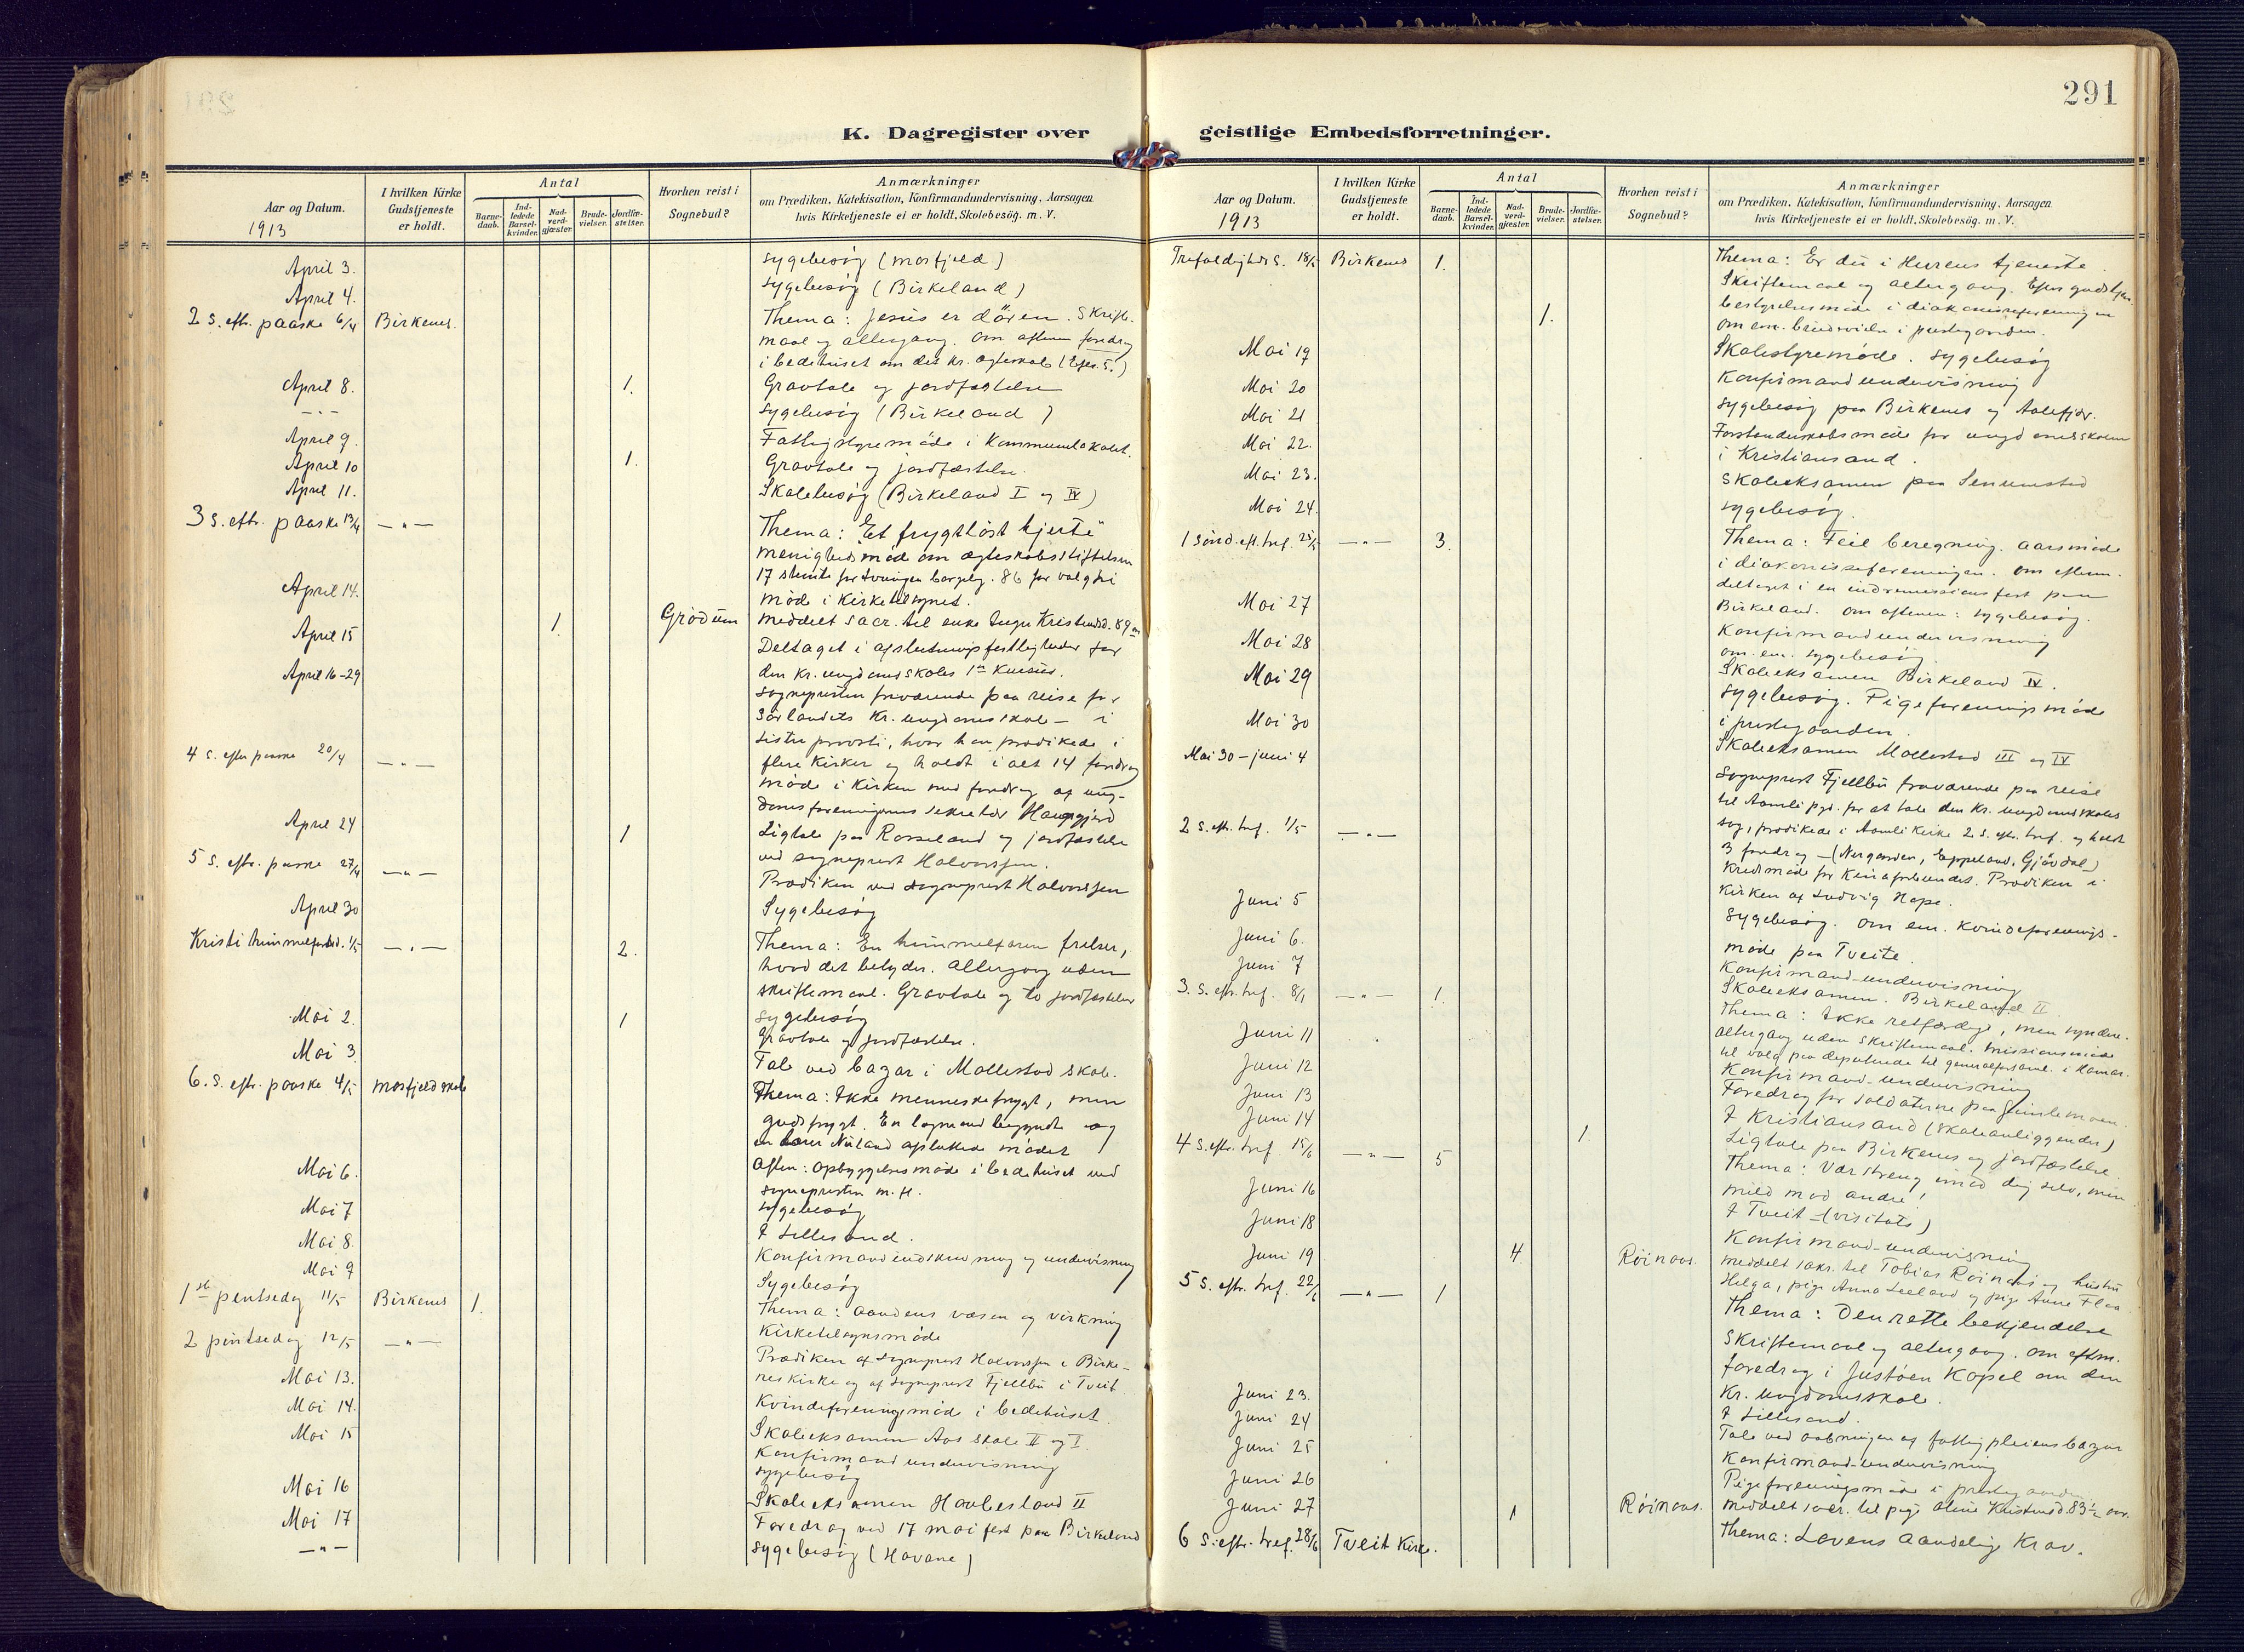 291
K. Dagregister over geistlige Embedsforretninger.
Aar og Datum.
1913
I hvilken Kirke Gudstjeneste er holdt.
Antal
Barne-daab.
Ind-ledede Barsel-kvinder.
Nad-verd-gjæster.
Brude-vielser.
Jordfæ-stelser.
Hvorhen reist i Sognebud?
Anmærkninger
om Prædiken, Katekisation, Konfirmandundervisning, Aarsagen
hvis Kirketjeneste ei er holdt, Skolebesög. m. V.
April 3. sygebesög (mosfjeld)
April 4. sygebesög (Birkeland)
2 S. eftr. paaske 6/4 Birkenes. Thema: Jesus er dören. Skrifte-
maal og altergang. Om aftenen foredrag
i bedehuset om det kr. ægteskab (Efes. 5.)
April 8. 1. Gravtale og jordfæstelse
-"- sygebesög (Birkeland)
April 9. Fattigstyremöde i Kommunelokalet.
April 10 1. Gravtale og jordfæstelse.
April 11. Skolebesög (Birkeland I og IV)
3 S. eftr. paaske 13/4 -"- Thema: "Et frygtlöst hjerte"
menighedsmöde om ægteskabsstiftelsen
17 stemte for tvungen borgelig. 86 for valgfri
April 14. möde i Kirketilsynet.
April 15 1. Grödum meddelt sacr. til enke Kristensd. 89
Deltaget i afslutningsfestligheder for
den kr. ungdomsskoles 1ste kursus.
April 16-29 sognepresten fraværende paa reise for
Sörlandets Kr. ungdomsskole - i
Lister provsti, hvor han prædikede i
flere Kirker og holdt i alt 14 foredrag
4 S. efter paaske 20/4 -"- möde i Kirken med foredrag af ung-
domsforeningernes sekretær
April 24 1 Ligtale paa Rosseland og jordfæstelse
ved sogneprest Halvorssen.
5 S. eftr. paaske 27/4 -"- Prædiken ved sogneprest Halvorssen
April 30 Sygebesög
Kristi himmelfartsd. 1/5 -"- 2. Thema: En himmelfaren frelser,
hvad det betyder. Altergang uden
skriftemaal. Gravtale og to jordfæstelser
Mai 2. sygebesög
1 Gravtale og jordfæstelse.
Mai 3. Tale ved bazar i Mollestad skole.
6. S. eftr. paaske 4/5 mosfjeld skole Thema: Ikke menneskefrygt, men
gudsfrygt. En lægmand begyndte og
en lærer Nuland afsluttede mödet
Aften: opbyggelsesmöde i bedehuset ved
sognepresten m. fl.
Mai 6. sygebesög
Mai 7 I Lillesand.
Mai 8. Konfirmandindskrivning og undervisning
Mai 9 Sygebesög
1ste pintsedag 11/5 Birkenes 1. Thema: aandens væsen og virkning
Kirketilsynsmöde
2 pintsedag 12/5 -"- Prædiken af sogneprest Halvorssen i Birke-
nes kirke og af sogneprest Fjellbu i Tveit
Mai 13. Kvindeforeningsmöde i bedehuset.
Mai 14. Skoleeksamen Aas skole II og I
Mai 15 Konfirmandundervisning
sygebesög
Mai 16 Skoleeksamen Haabesland II
Mai 17 Foredrag ved 17 mai fest paa Birkeland
-"- sygebesög (Havane)
Aar og Datum.
1913
I hvilken Kirke Gudstjeneste er holdt.
Antal
Barne-daab.
Ind-ledede Barsel-kvinder.
Nad-verd-gjæster.
Brude-vielser.
Jordfæ-stelser.
Hvorhen reist i Sognebud?
Anmærkninger
om Prædiken, Katekisation, Konfirmandundervisning, Aarsagen
hvis Kirketjeneste ei er holdt, Skolebesög. m. V.
Trefoldighds S. 18/5 Birkenes 1. Thema: Er du i Herrens tjeneste.
Skriftemaal og altergang. Efter gudstjen.
bestyrelsesmöde i diakonisseforeningen
1. om em. brudevielse i prestegaarden.
Mai 19 Skolestyremöde. sygebesög
Mai 20 Konfirmandundervisning
Mai 21 sygebesög paa Birkenes og Aalefjær.
Mai 22. Forstanderskabsmöde for ungdomsskolen
i Kristiansand.
Mai 23. Skoleeksamen paa Senumstad
Mai 24. sygebesög.
1 sönd. eft. tref. 25/5 -"- 3. Thema: Feil beregning. aarsmöde
i diakonisseforeningen. om efterm.
deltaget i en indremissionsfest paa
Birkeland. Om aftenen: sygebesög.
Mai 27 Konfirmandundervisning
om em. sygebesög
Mai 28 Skoleeksamen Birkeland IV.
Mai 29 sygebesög. Pigeforeningsmöde
i prestegaarden.
Mai 30 Skoleeksamen Mollestad III og IV
Mai 30 - juni 4 sogneprest Fjellbu fraværende paa reise
til Aamli pgd. for at tale den kr. ungdomsskoles
sag, prædikede i Aamli Kirke 2 S. eftr. tref. og holdt
3 foredrag - (Nergaarden, Eppeland, Gjövdal)
2 S. eft. tref. 1/5 -"- Kredsmöde for Kinaforbundet. Prædiken i
Kirken af Ludvig Hope.
Juni 5 sygebesög. Om em. kvindeforenings-
möde paa Tveite.
Juni 6. Konfirmand-undervisning
Juni 7 Skoleeksamen. Birkeland II
3. S. eft. tref. 8/1 -"- 1. Thema: Ikke retfærdige, men syndere.
altergang uden skriftemaal. missionsmöde
til valg paa deputerede til generalforsaml. i Hamar.
Juni 11 Konfirmand-undervisning
Juni 12 Foredrag for soldaterne paa Gimlemoen.
Juni 13 I Kristiansand (skoleanliggender)
Juni 14 1. Ligtale paa Birkenes og jordfæstelse.
4 S. eftr. tref 15/6 -"- 5 Thema: Vær streng imod dig selv, men
mild mod andre!
Juni 16 I Tveit - (visitats)
Juni 18 Konfirmand-undervisning
Juni 19 4 Röinaas. meddelt sakr. til Tobias Röinaas og hustru
Helga, pige Anna Lieland og pige Anne Flaa
5 S. eftr. tref. 22/6 -"- 1 Thema: Den rette bekjendelse
Skriftemaal og altergang. Om eftm.
foredrag i Justöen Kapel om den
Kr. ungdomsskole.
Juni 23. I Lillesand.
Juni 24 Tale ved aabningen af fattigpleiens bazar
Juni 25 Konfirmand-undervisning
Juni 26 Pigeforeningsmöde i prestegaarden
Juni 27 1 Röinaas. meddelt sacr. til pige Oline Kristensd. 83½ aar.
6 S. eftr. tref. 28/6 Tveit Kirke. Thema: Lovens aandelige Krav.